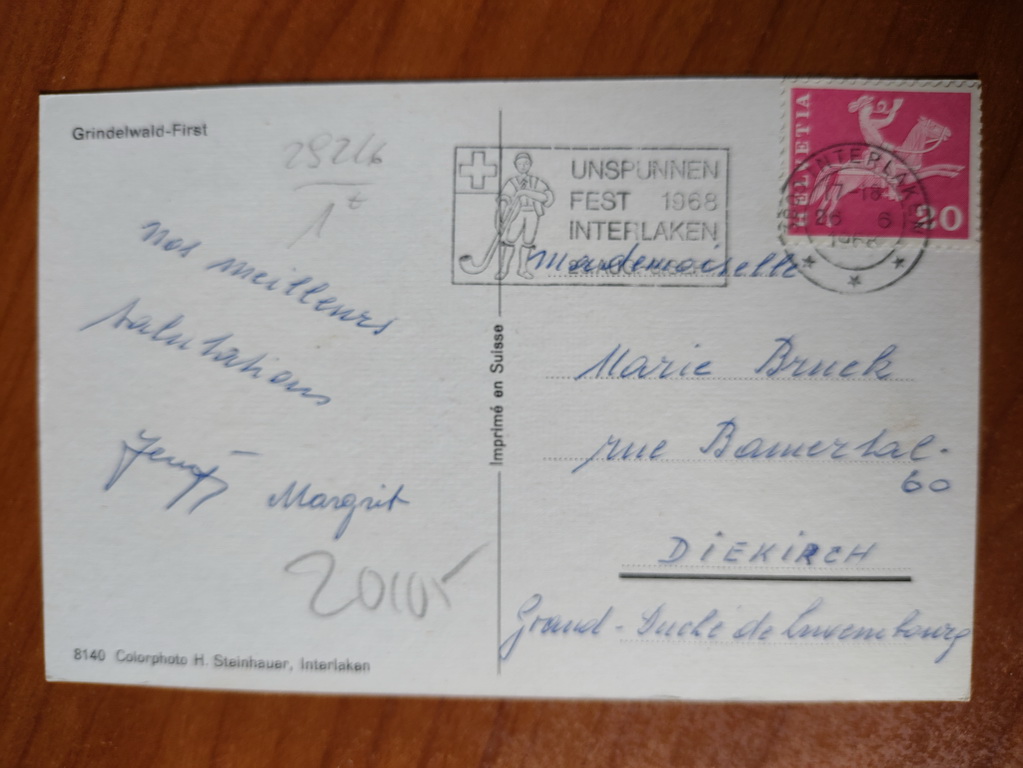 Grindelwald-First
1 €
nos meilleurs
salutations
Margrit
8140 Colorphoto H. Steinhauer, Interlaken
Imprimé en Suisse
UNSPUNNEN
FEST 1968
INTERLAKEN
HELVETIA
20
INTERLAKEN
26 6
1968
Mademoiselle
Marie Bruck
rue Bamertal.
60
DIEKIRCH
Grand-Duché de Luxembourg